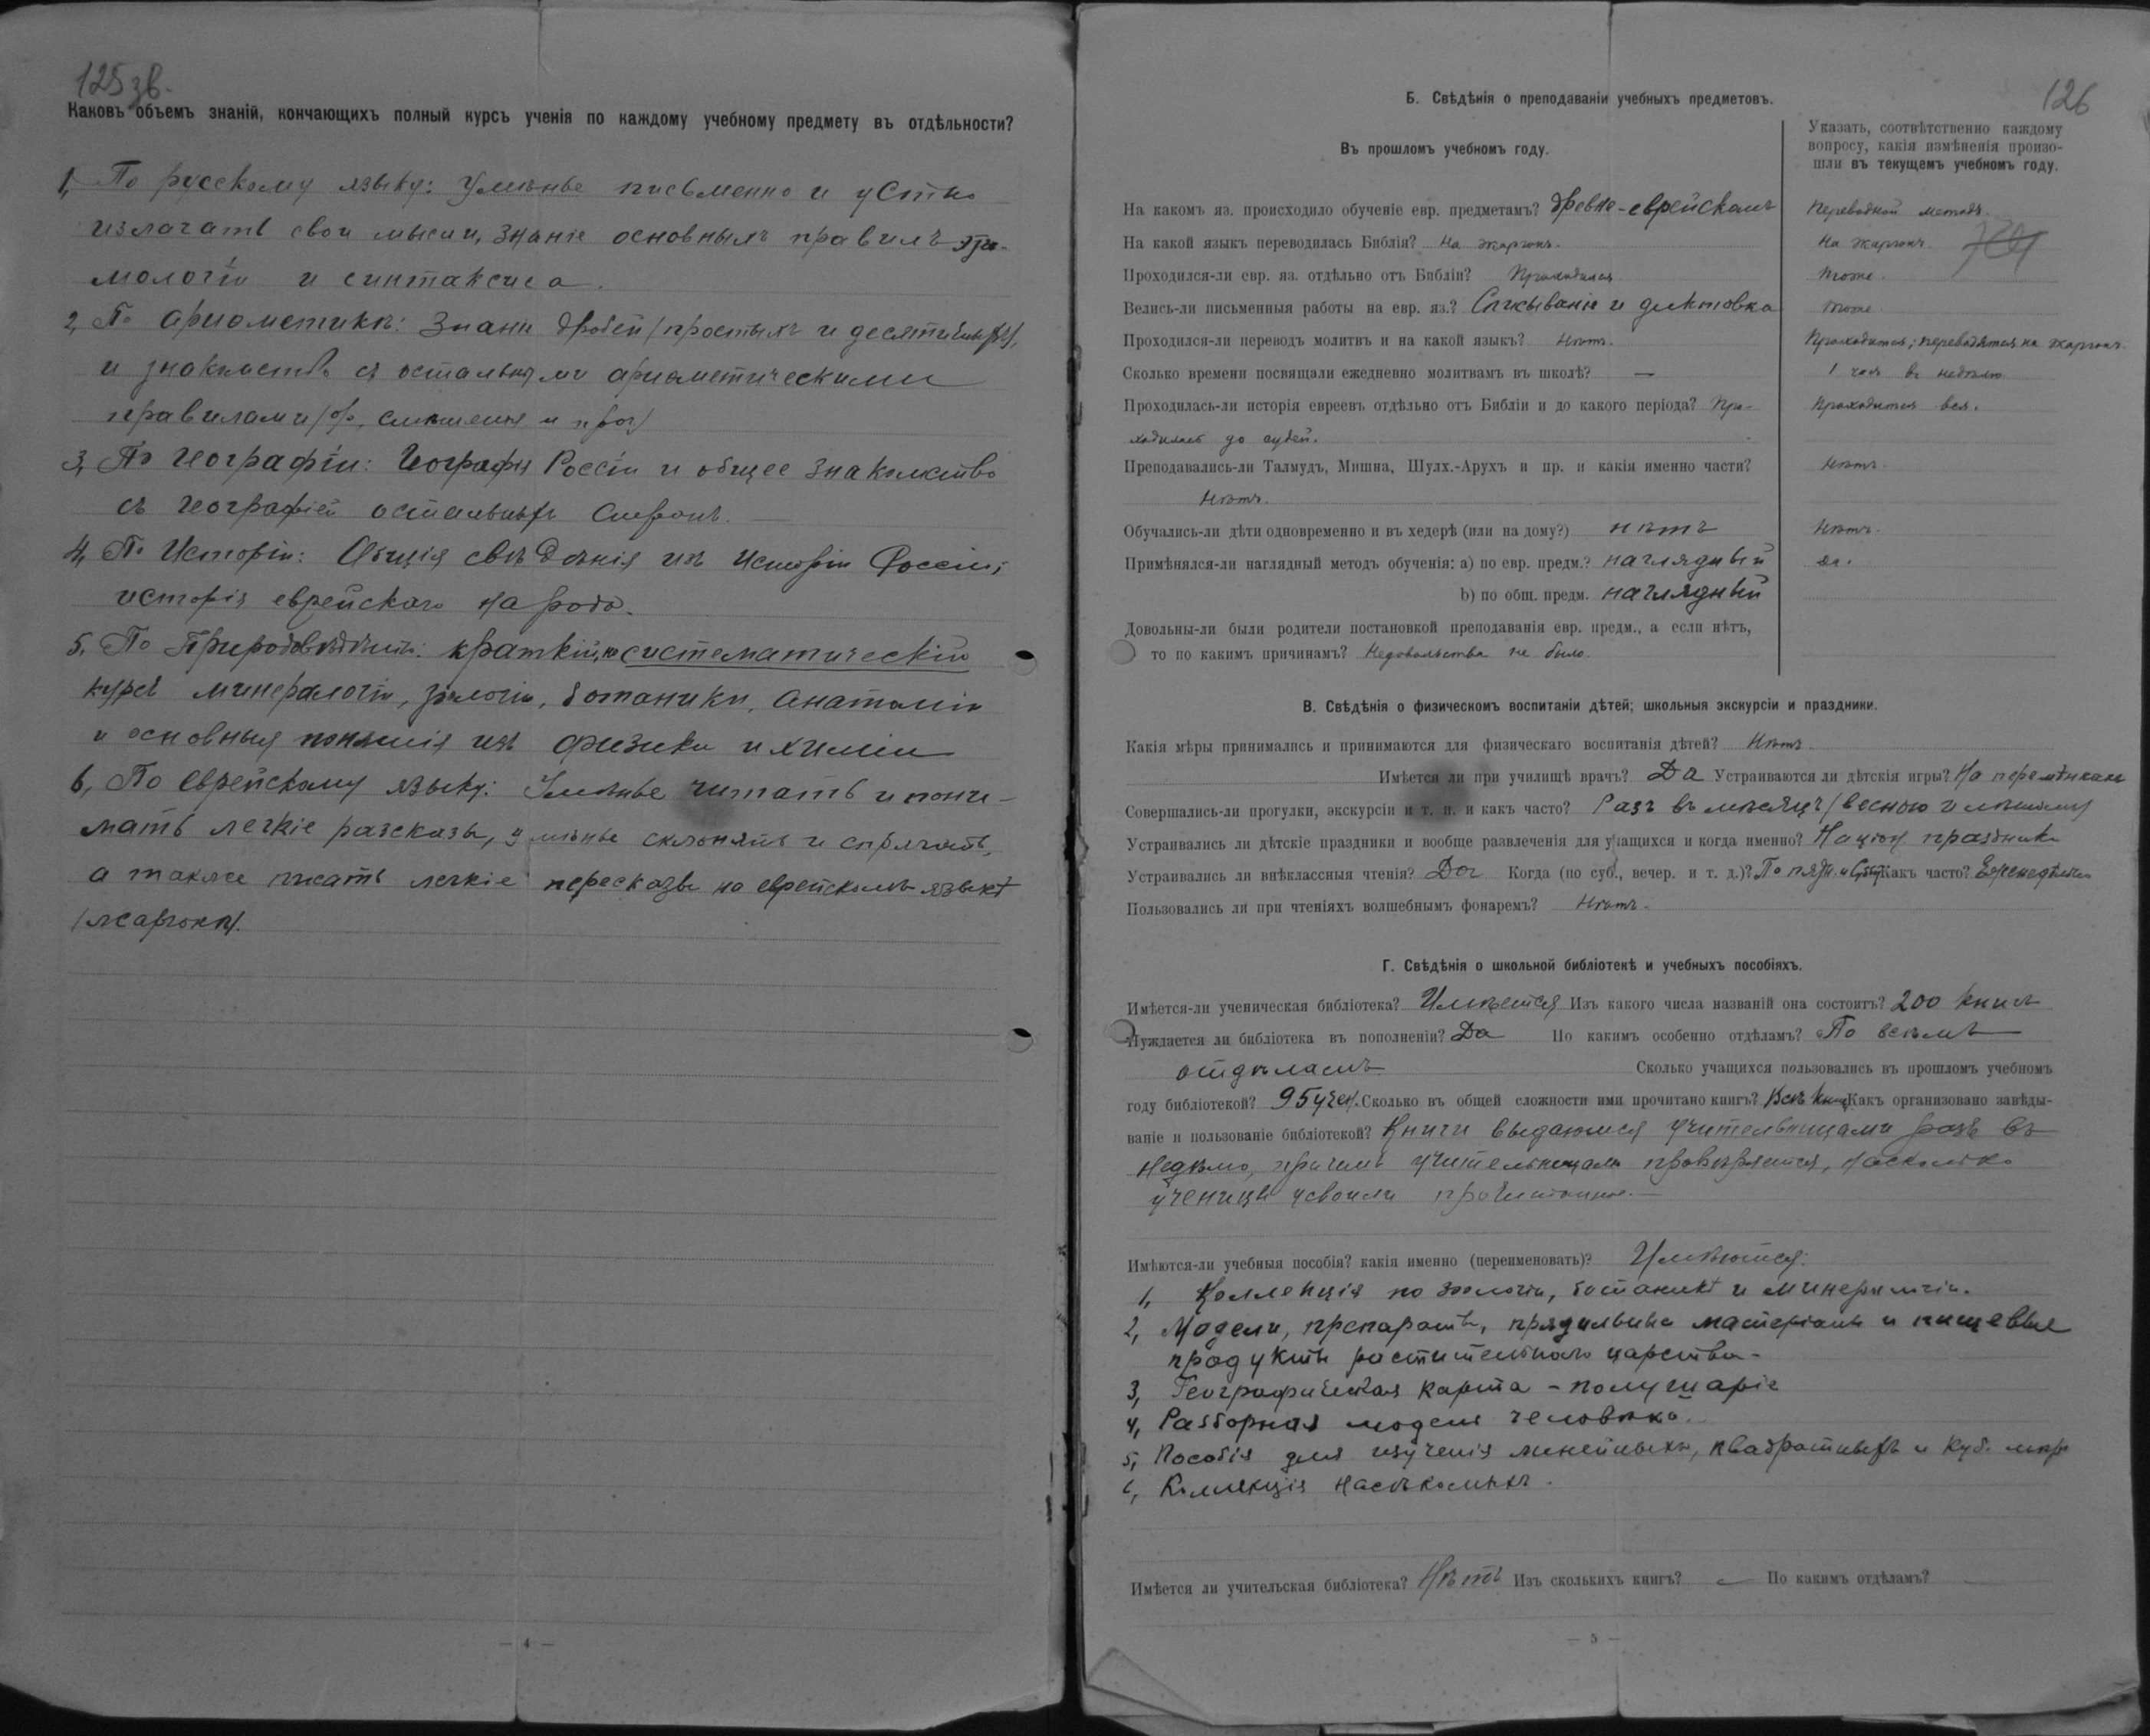 125 зв.
Каковъ объемъ знаній, кончающихъ полный курсъ ученія по каждому учебному предмету въ отдѣльности?
1, По русскому языку: Умѣнье письменно и устно
излагать свои мысли, знаніе основныхъ правилъ эти-
мологіи и синтаксиса.
2, По ариѳметикѣ: Знаніе дробей (простыхъ и десятичныхъ),
и знакомство съ остальными ариѳметическими
правилами (%, смѣшенія и проч)
3, По Географіи: Географія Россіи и общее знакомство
съ географіей остальныхъ странъ. —
4, По Исторіи: Общія свѣдѣнія изъ Исторіи Россіи;
исторія еврейскаго народа.
5, По Природовѣдѣнію: краткій систематическій
курсъ минералогіи, зоологіи, ботаники, анатоміи
и основныя понятія изъ физики и химіи
6, По Еврейскому языку: Умѣнье читать и пони-
мать легкіе разсказы, умѣнье склонять и спрягать,
а также писать легкіе пересказы на еврейскомъ языкѣ
(жаргонѣ).
— 4 —
126
Б. Свѣдѣнія о преподаваніи учебныхъ предметовъ.
Въ прошломъ учебномъ году.
Указать, соотвѣтственно каждому
вопросу, какія измѣненія произо-
шли въ текущемъ учебномъ году.
На какомъ яз. происходило обученіе евр. предметамъ? Древне-еврейскомъ Переводной методъ.
На какой языкъ переводилась Библія? На жаргонъ. На жаргонъ.
Проходился-ли евр. яз. отдѣльно отъ Библіи? Проходился Тоже.
Велись-ли письменныя работы на евр. яз.? Списываніе и диктовка Тоже.
Проходился-ли переводъ молитвъ и на какой языкъ? Нѣтъ. Проходится; переводятся на жаргонъ.
Сколько времени посвящали ежедневно молитвамъ въ школѣ? — 1 часъ въ недѣлю.
Проходилась-ли исторія евреевъ отдѣльно отъ Библіи и до какого періода? Про- Проходится вся.
ходилась до судей.
Преподавались-ли Талмудъ, Мишна, Шулх.-Арухъ и пр. и какія именно части? Нѣтъ.
Нѣтъ.
Обучались-ли дѣти одновременно и въ хедерѣ (или на дому?) нѣтъ Нѣтъ.
Примѣнялся-ли наглядный методъ обученія: а) по евр. предм.? наглядный Да.
b) по общ. предм. наглядный
Довольны-ли были родители постановкой преподаванія евр. предм., а если нѣтъ,
то по какимъ причинамъ? Недовольства не было.
В. Свѣдѣнія о физическомъ воспитаніи дѣтей; школьныя экскурсіи и праздники.
Какія мѣры принимались и принимаются для физическаго воспитанія дѣтей? Нѣтъ.
Имѣется ли при училищѣ врачъ? Да Устраиваются ли дѣтскія игры? На перемѣнахъ
Совершались-ли прогулки, экскурсіи и т. п. и какъ часто? Разъ въ мѣсяцъ (весною и лѣтомъ)
Устраивались ли дѣтскіе праздники и вообще развлеченія для учащихся и когда именно? Націон. праздники
Устраивались ли внѣклассныя чтенія? Да Когда (по суб., вечер. и т. д.)? По пятн. и Субб. Какъ часто? Еженедѣльно
Пользовались ли при чтеніяхъ волшебнымъ фонаремъ? Нѣтъ.
Г. Свѣдѣнія о школьной библіотекѣ и учебныхъ пособіяхъ.
Имѣется-ли ученическая библіотека? Имѣется Изъ какого числа названій она состоитъ? 200 книгъ
Нуждается ли библіотека въ пополненіи? Да По какимъ особенно отдѣламъ? По всѣмъ
отдѣламъ Сколько учащихся пользовались въ прошломъ учебномъ
году библіотекой? 95 учен. Сколько въ общей сложности ими прочитано книгъ? Всѣ книги Какъ организовано завѣды-
ваніе и пользованіе библіотекой? Книги выдаются учительницами разъ въ
недѣлю, причемъ учительницами провѣряется, насколько
ученицы усвоили прочитанное. —
Имѣются-ли учебныя пособія? какія именно (переименовать)? Имѣются:
1, Коллекція по зоологіи, ботаникѣ и минералогіи.
2, Модели, препараты, прядильные матеріалы и пищевые
продукты растительнаго царства.
3, Географическая карта – полушаріе
4, Разборная модель человѣка.
5, Пособія для изученія линейныхъ, квадратныхъ и куб. мѣръ
6, Коллекція насѣкомыхъ.
Имѣется ли учительская библіотека? Нѣтъ Изъ сколькихъ книгъ? — По какимъ отдѣламъ? —
— 5 —